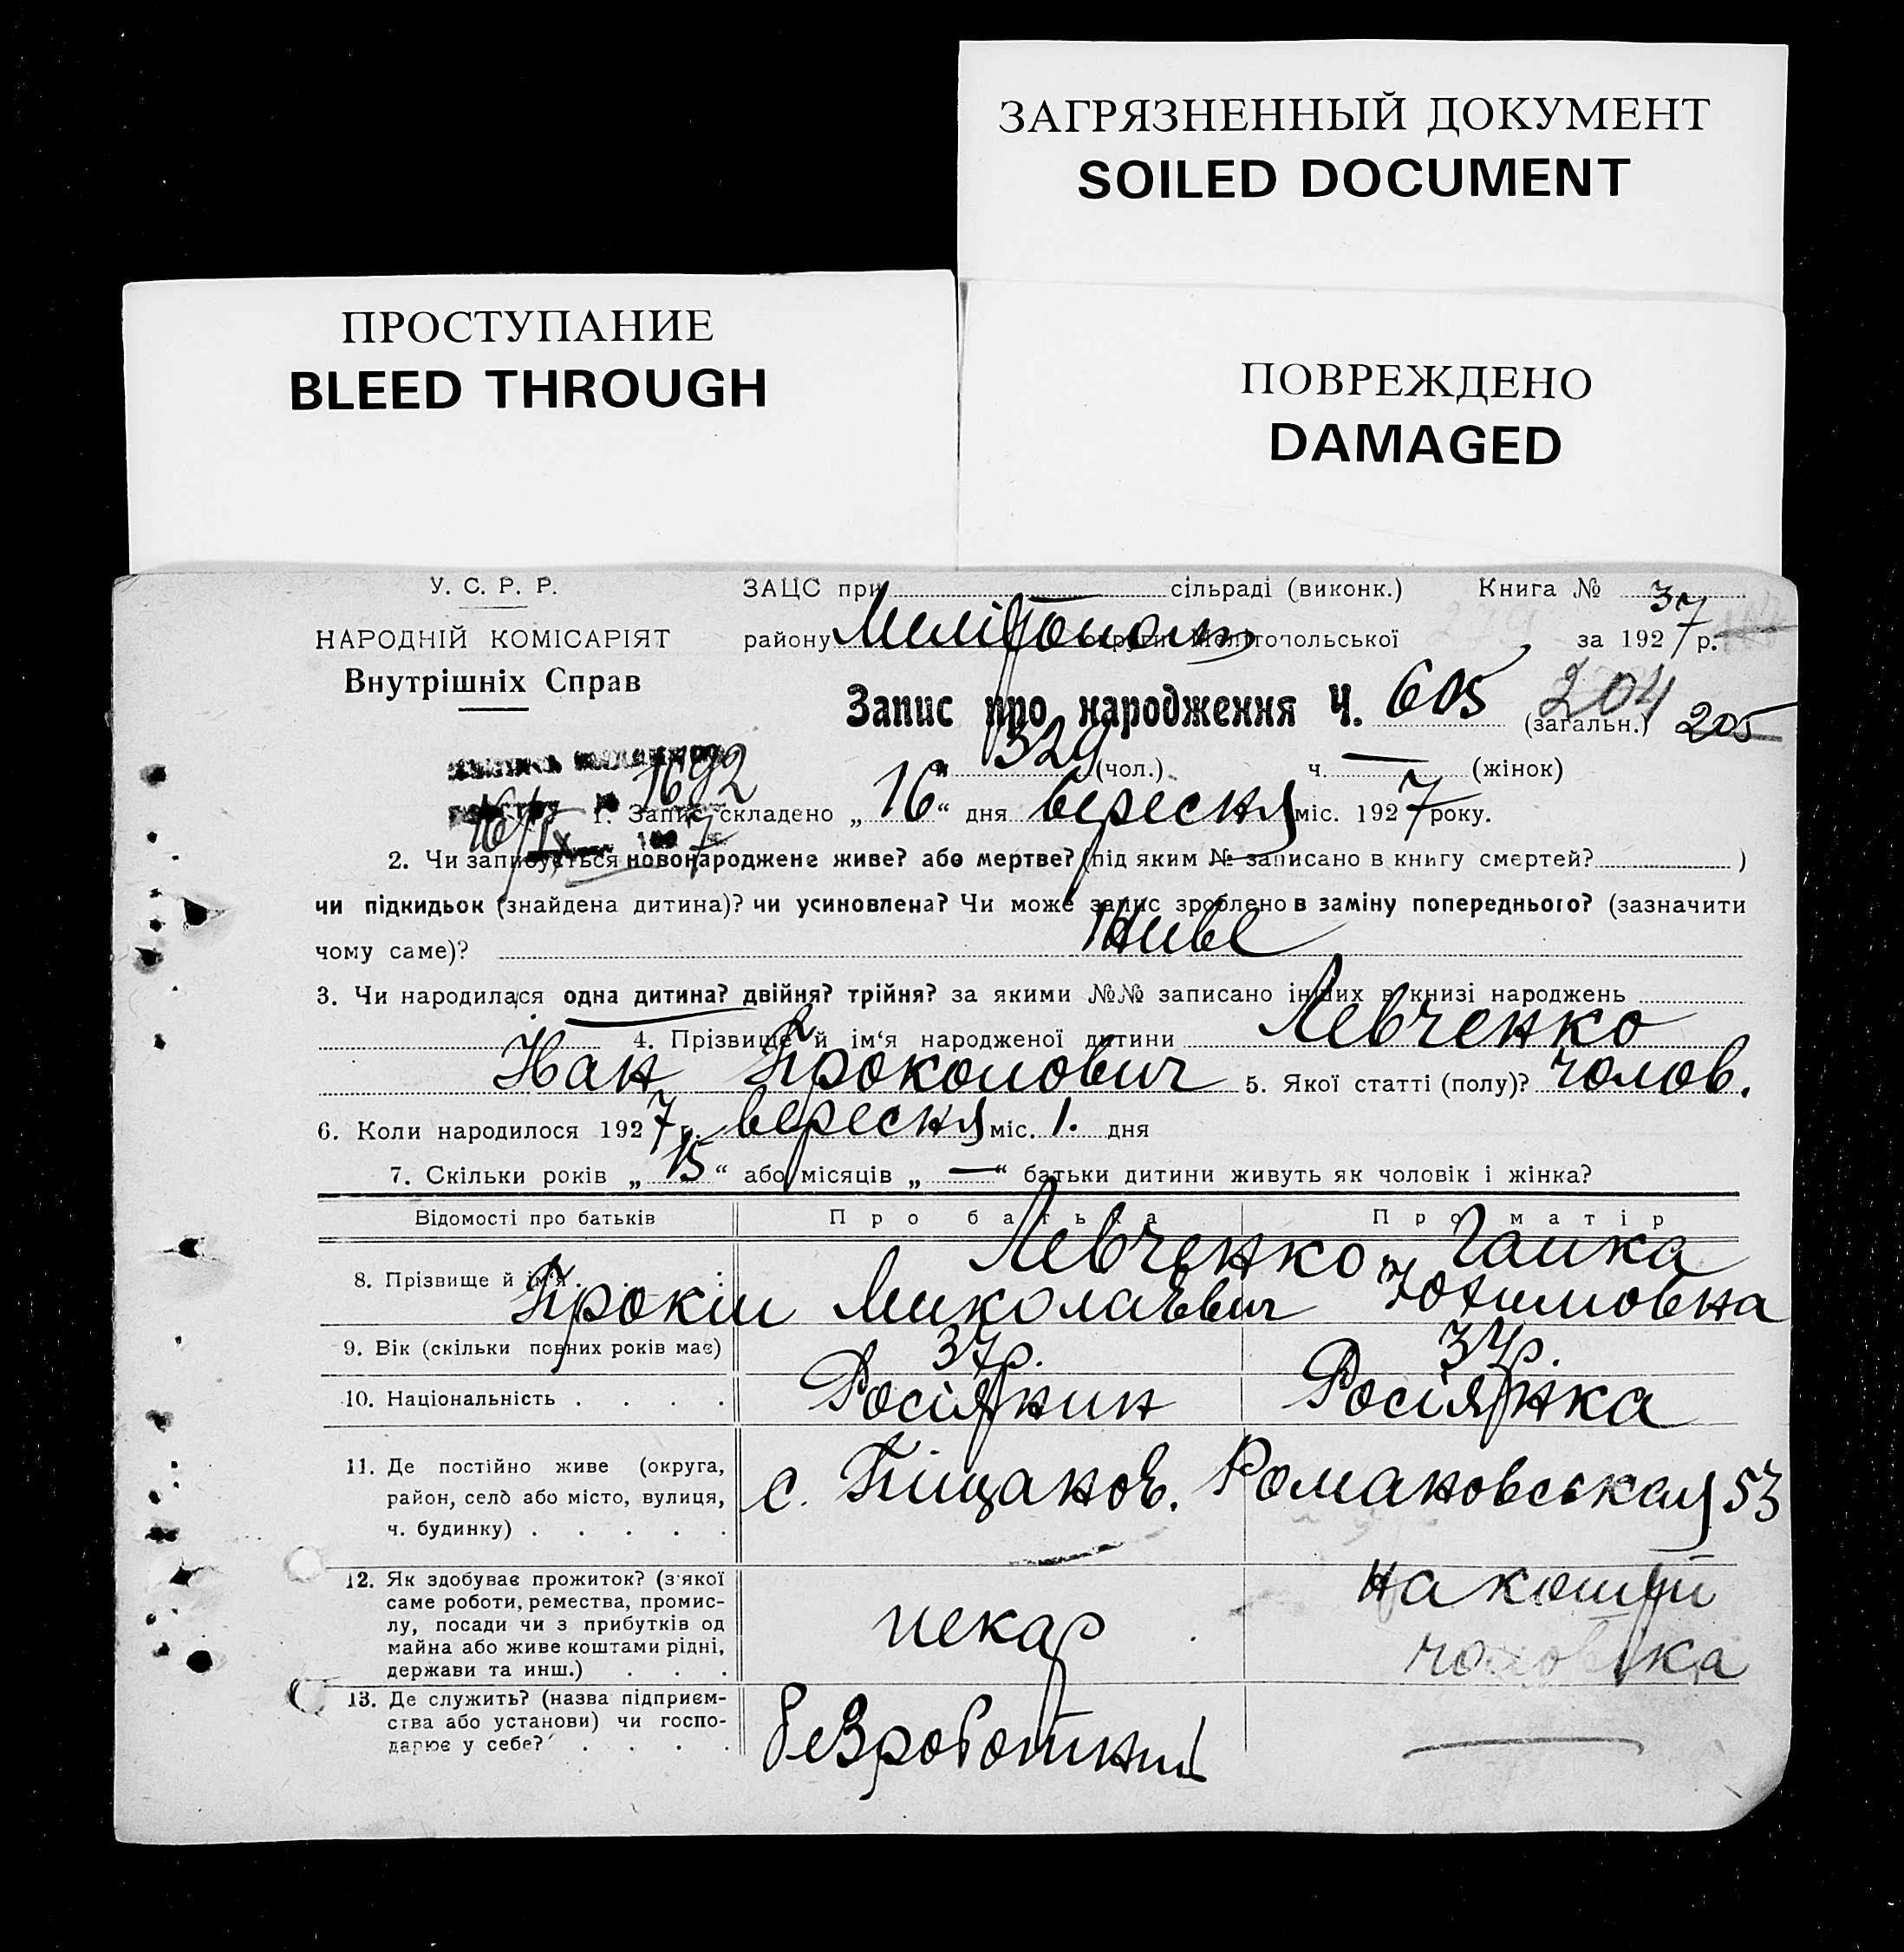 ЗАГРЯЗНЕННЫЙ ДОКУМЕНТ
SOILED DOCUMENT
ПРОСТУПАНИЕ
BLEED THROUGH
ПОВРЕЖДЕНО
DAMAGED
У. С. Р. Р.
НАРОДНІЙ КОМІСАРІЯТ
Внутрішніх Справ
ЗАЦС при — сільраді (виконк.) Книга № 37
району Мелітополь округи Мелітопольської за 1927 р.
Запис про народження Ч. 605 (загальн.) 204 205
329 (чол.) ч. — (жінок)
1692
1. Запис складено „16“ дня вересня міс. 1927 року.
16/IX 1927
2. Чи записується новонароджене живе? або мертве? (під яким № записано в книгу смертей? )
чи підкидьок (знайдена дитина)? чи усиновлена? Чи може запис зроблено в заміну попереднього? (зазначити
чому саме)? Живе
3. Чи народилася одна дитина? двійня? трійня? за якими №№ записано інших в книзі народжень
4. Прізвище й ім‘я народженої дитини Левченко
Іван Прокопович 5. Якої статті (полу)? чолов.
6. Коли народилося 1927 р. вересня міс. 1. дня
7. Скільки років „15“ або місяців „—“ батьки дитини живуть як чоловік і жінка?
Відомості про батьків Про батька Про матір
8. Прізвище й ім‘я Левченко Ганка
Прокіп Миколаєвич Юхимовна
9. Вік (скільки повних років має) 37р. 34р.
10. Національність . . . . Росіянин Росіянка
11. Де постійно живе (округа,
район, село або місто, вулиця,
ч. будинку) . . . . .
с. Піщанов. Романовская 53
12. Як здобуває прожиток? (з якої
саме роботи, ремества, промис-
лу, посади чи з прибутків од
майна або живе коштами рідні,
держави та инш.) . . .
пекар
на кошти
чоловіка
13. Де служить? (назва підприєм-
ства або установи) чи госпо-
дарює у себе? . . . .
безроботний